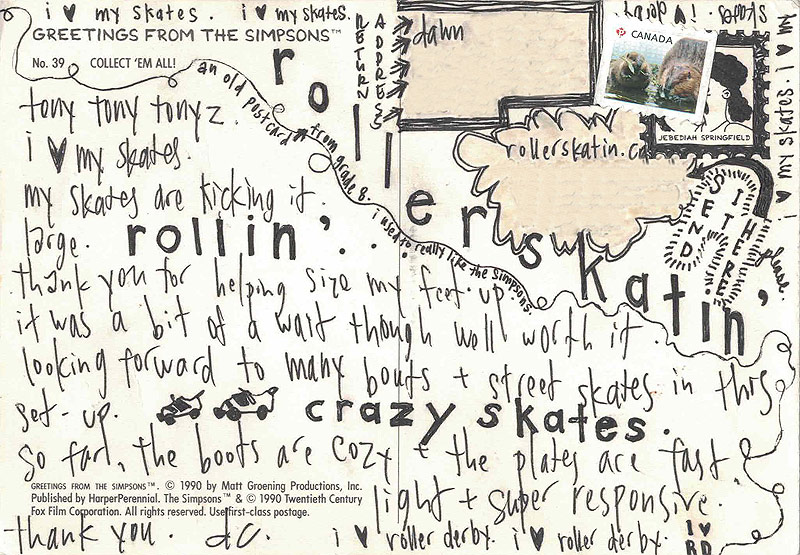 i ♥ my skates. i ♥ my skates.
skates. i ♥ derby
i ♥ my skates. i ♥ my
GREETINGS FROM THE SIMPSONS™
No. 39 COLLECT 'EM ALL!
RETURN ADDRESS
dawn
CANADA
P
JEBEDIAH SPRINGFIELD
rollerskatin.ca
SEND IT HERE
please.
an old postcard from grade 8. i used to really like the simpsons.
rollerskatin'
tony tony tonyz.
i ♥ my skates.
my skates are kicking it
large. rollin'...
thank you for helping size my feet up.
it was a bit of a wait though well worth it.
looking forward to many bouts + street skates in this
set-up. crazy skates.
so far, the boots are cozy + the plates are fast &
light + super responsive.
GREETINGS FROM THE SIMPSONS™. © 1990 by Matt Groening Productions, Inc.
Published by HarperPerennial. The Simpsons™ & © 1990 Twentieth Century
Fox Film Corporation. All rights reserved. Use first-class postage.
thank you. dc. i ♥ roller derby. i ♥ roller derby.
I ♥
RD